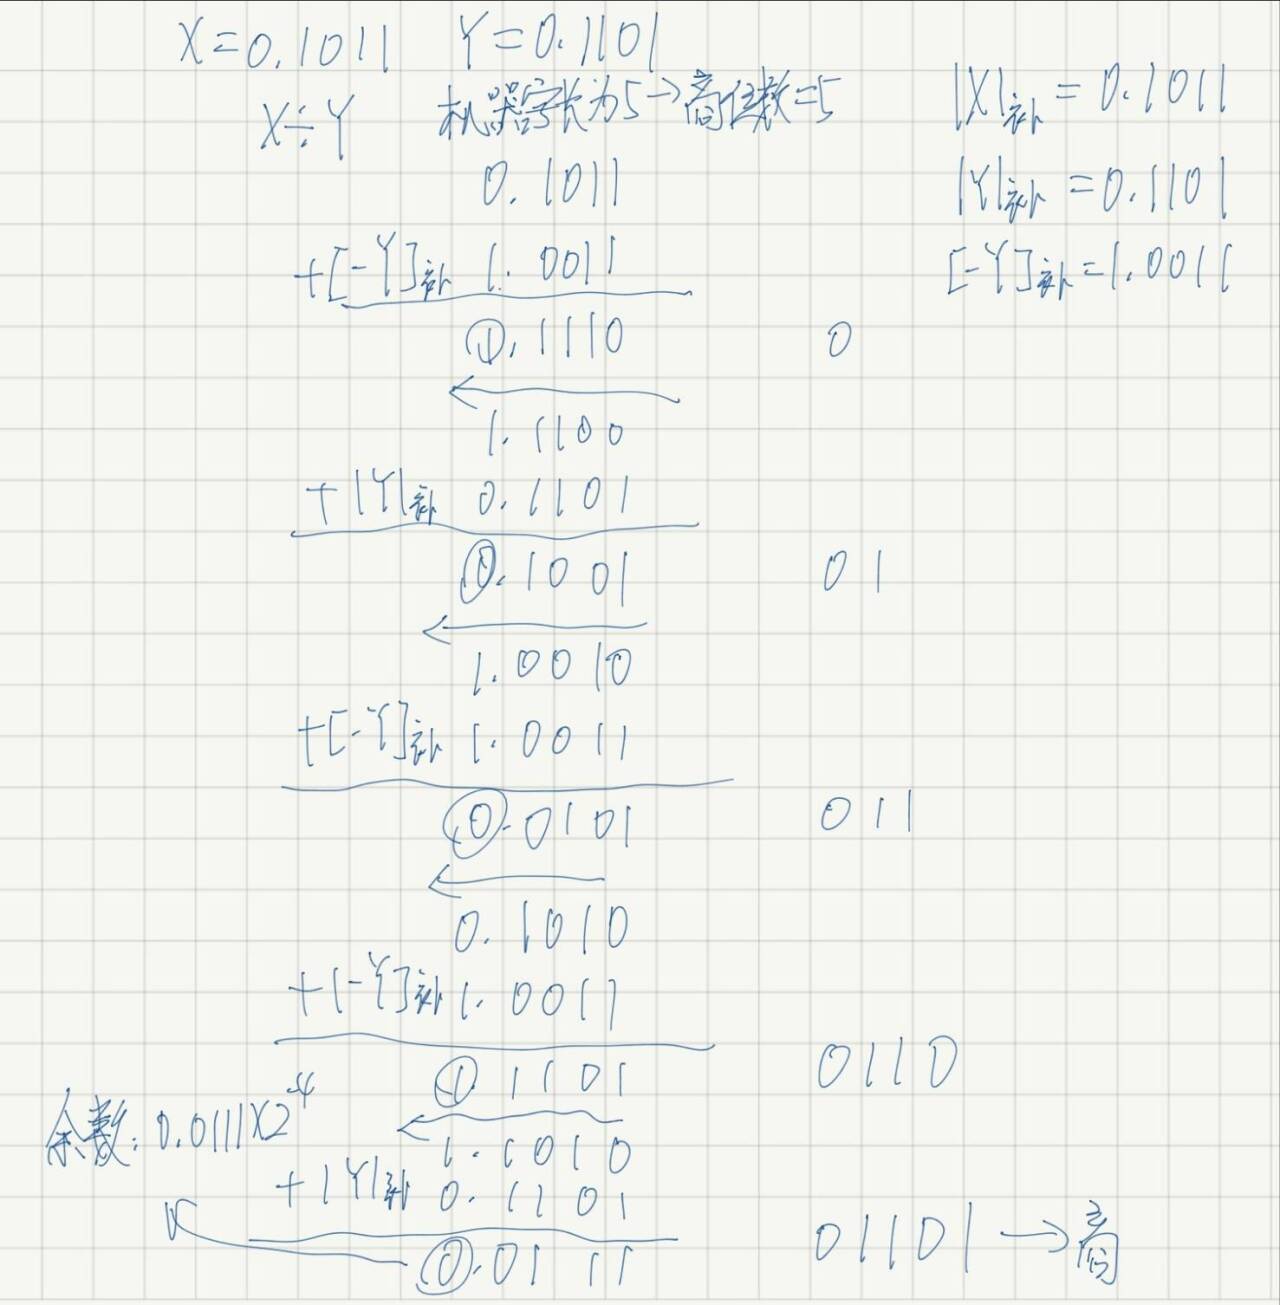 X=0.1011 Y=0.1101
X÷Y 机器字长为5→商位数=5
|X|补=0.1011
|Y|补=0.1101
[-Y]补=1.0011
0.1011
+[-Y]补 1.0011
1.1110 0
1.1100
+|Y|补 0.1101
0.1001 01
1.0010
+[-Y]补 1.0011
0.0101 011
0.1010
+[-Y]补 1.0011
1.1101 0110
余数:0.0111X2^-4
1.1010
+|Y|补 0.1101
0.0111 01101→商